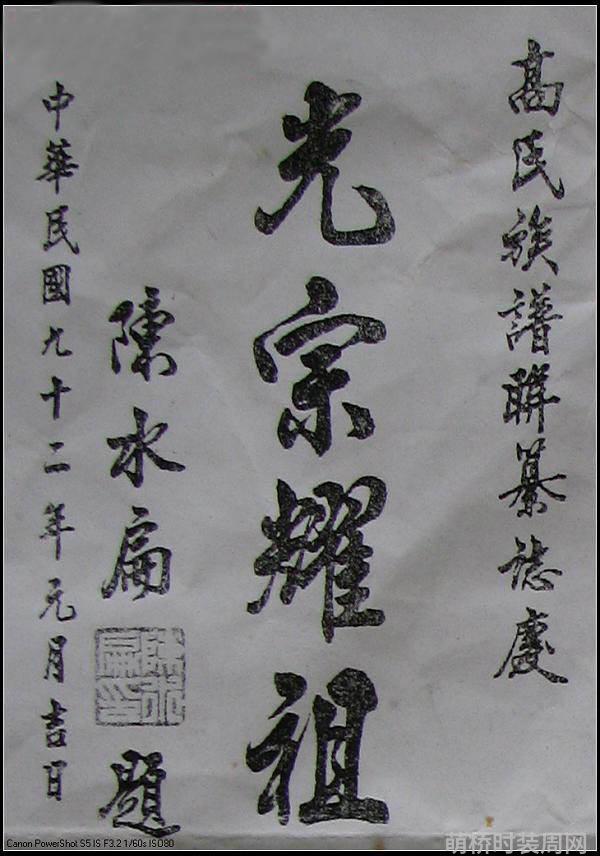 高氏族譜聯纂誌慶
光宗耀祖
陳水扁
題
中華民國九十二年元月吉日
Canon PowerShot S5 IS F3.2 1/60s ISO80
萌桥时装周网